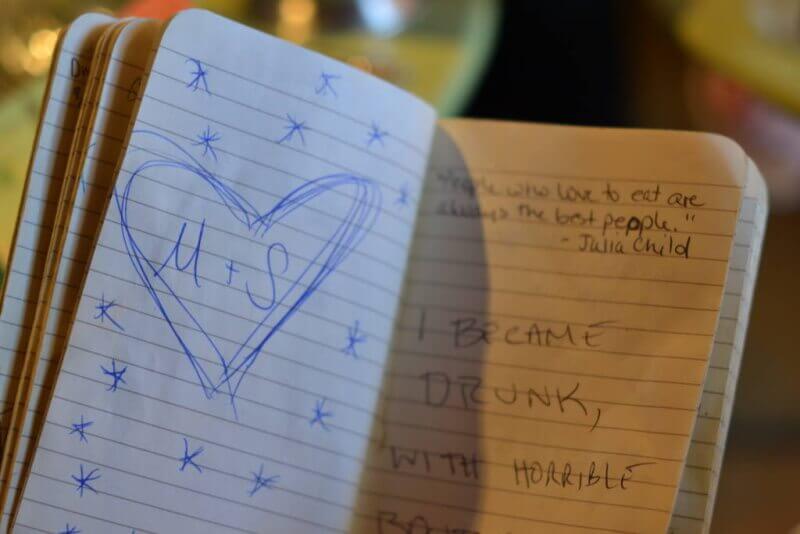 M + S
"People who love to eat are
always the best people."
- Julia Child
I BECAME
DRUNK,
WITH HORRIBLE